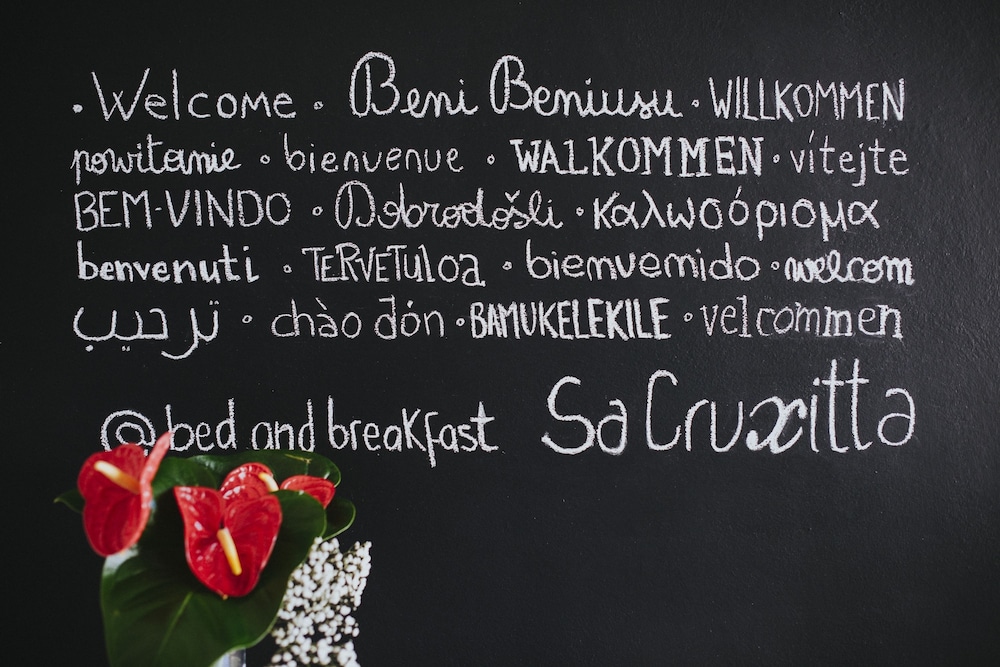 · Welcome · Beni Beniusu · WILLKOMMEN
powitanie · bienvenue · WALKOMMEN · vítejte
BEM-VINDO · Dobrodošli · καλωσόρισμα
benvenuti · TERVETULOA · bienvenido · welcom
ترحيب · chào đón · BAMUKELEKILE · velcommen
@ bed and breakfast Sa Cruxitta